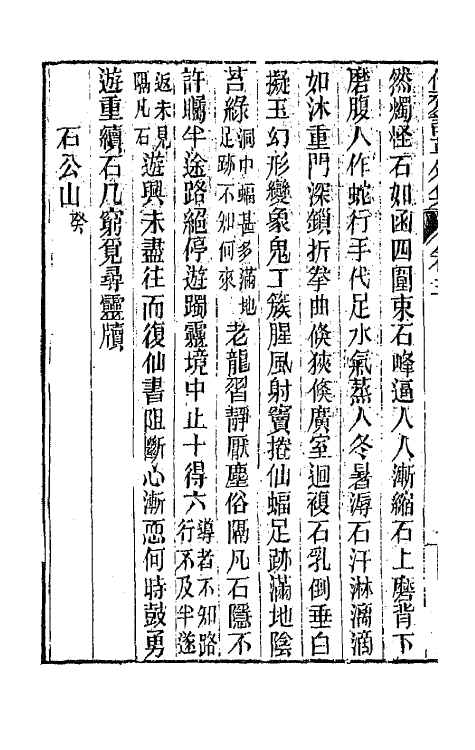 然燭怪石如函四圍東石峰逼人人漸縮石上磨背下
磨腹人作蛇行手代足水氣蒸人冬暑溽石汗淋漓滴
如沐重門深鎖折拳曲倏狹倏廣室迴複石乳倒垂白
擬玉幻形變象鬼工簇腥風射竇捲仙蝠足跡滿地陰
苔綠洞中蝠甚多滿地足跡不知何來老龍習靜厭塵俗隔凡石隱不
許矚半途路絕停遊躅靈境中止十得六導者不知路行不及半遂
返未見隔凡石遊興未盡往而復仙書阻斷心漸恧何時鼓勇
遊重續石几窮覓尋靈牘
石公山癸